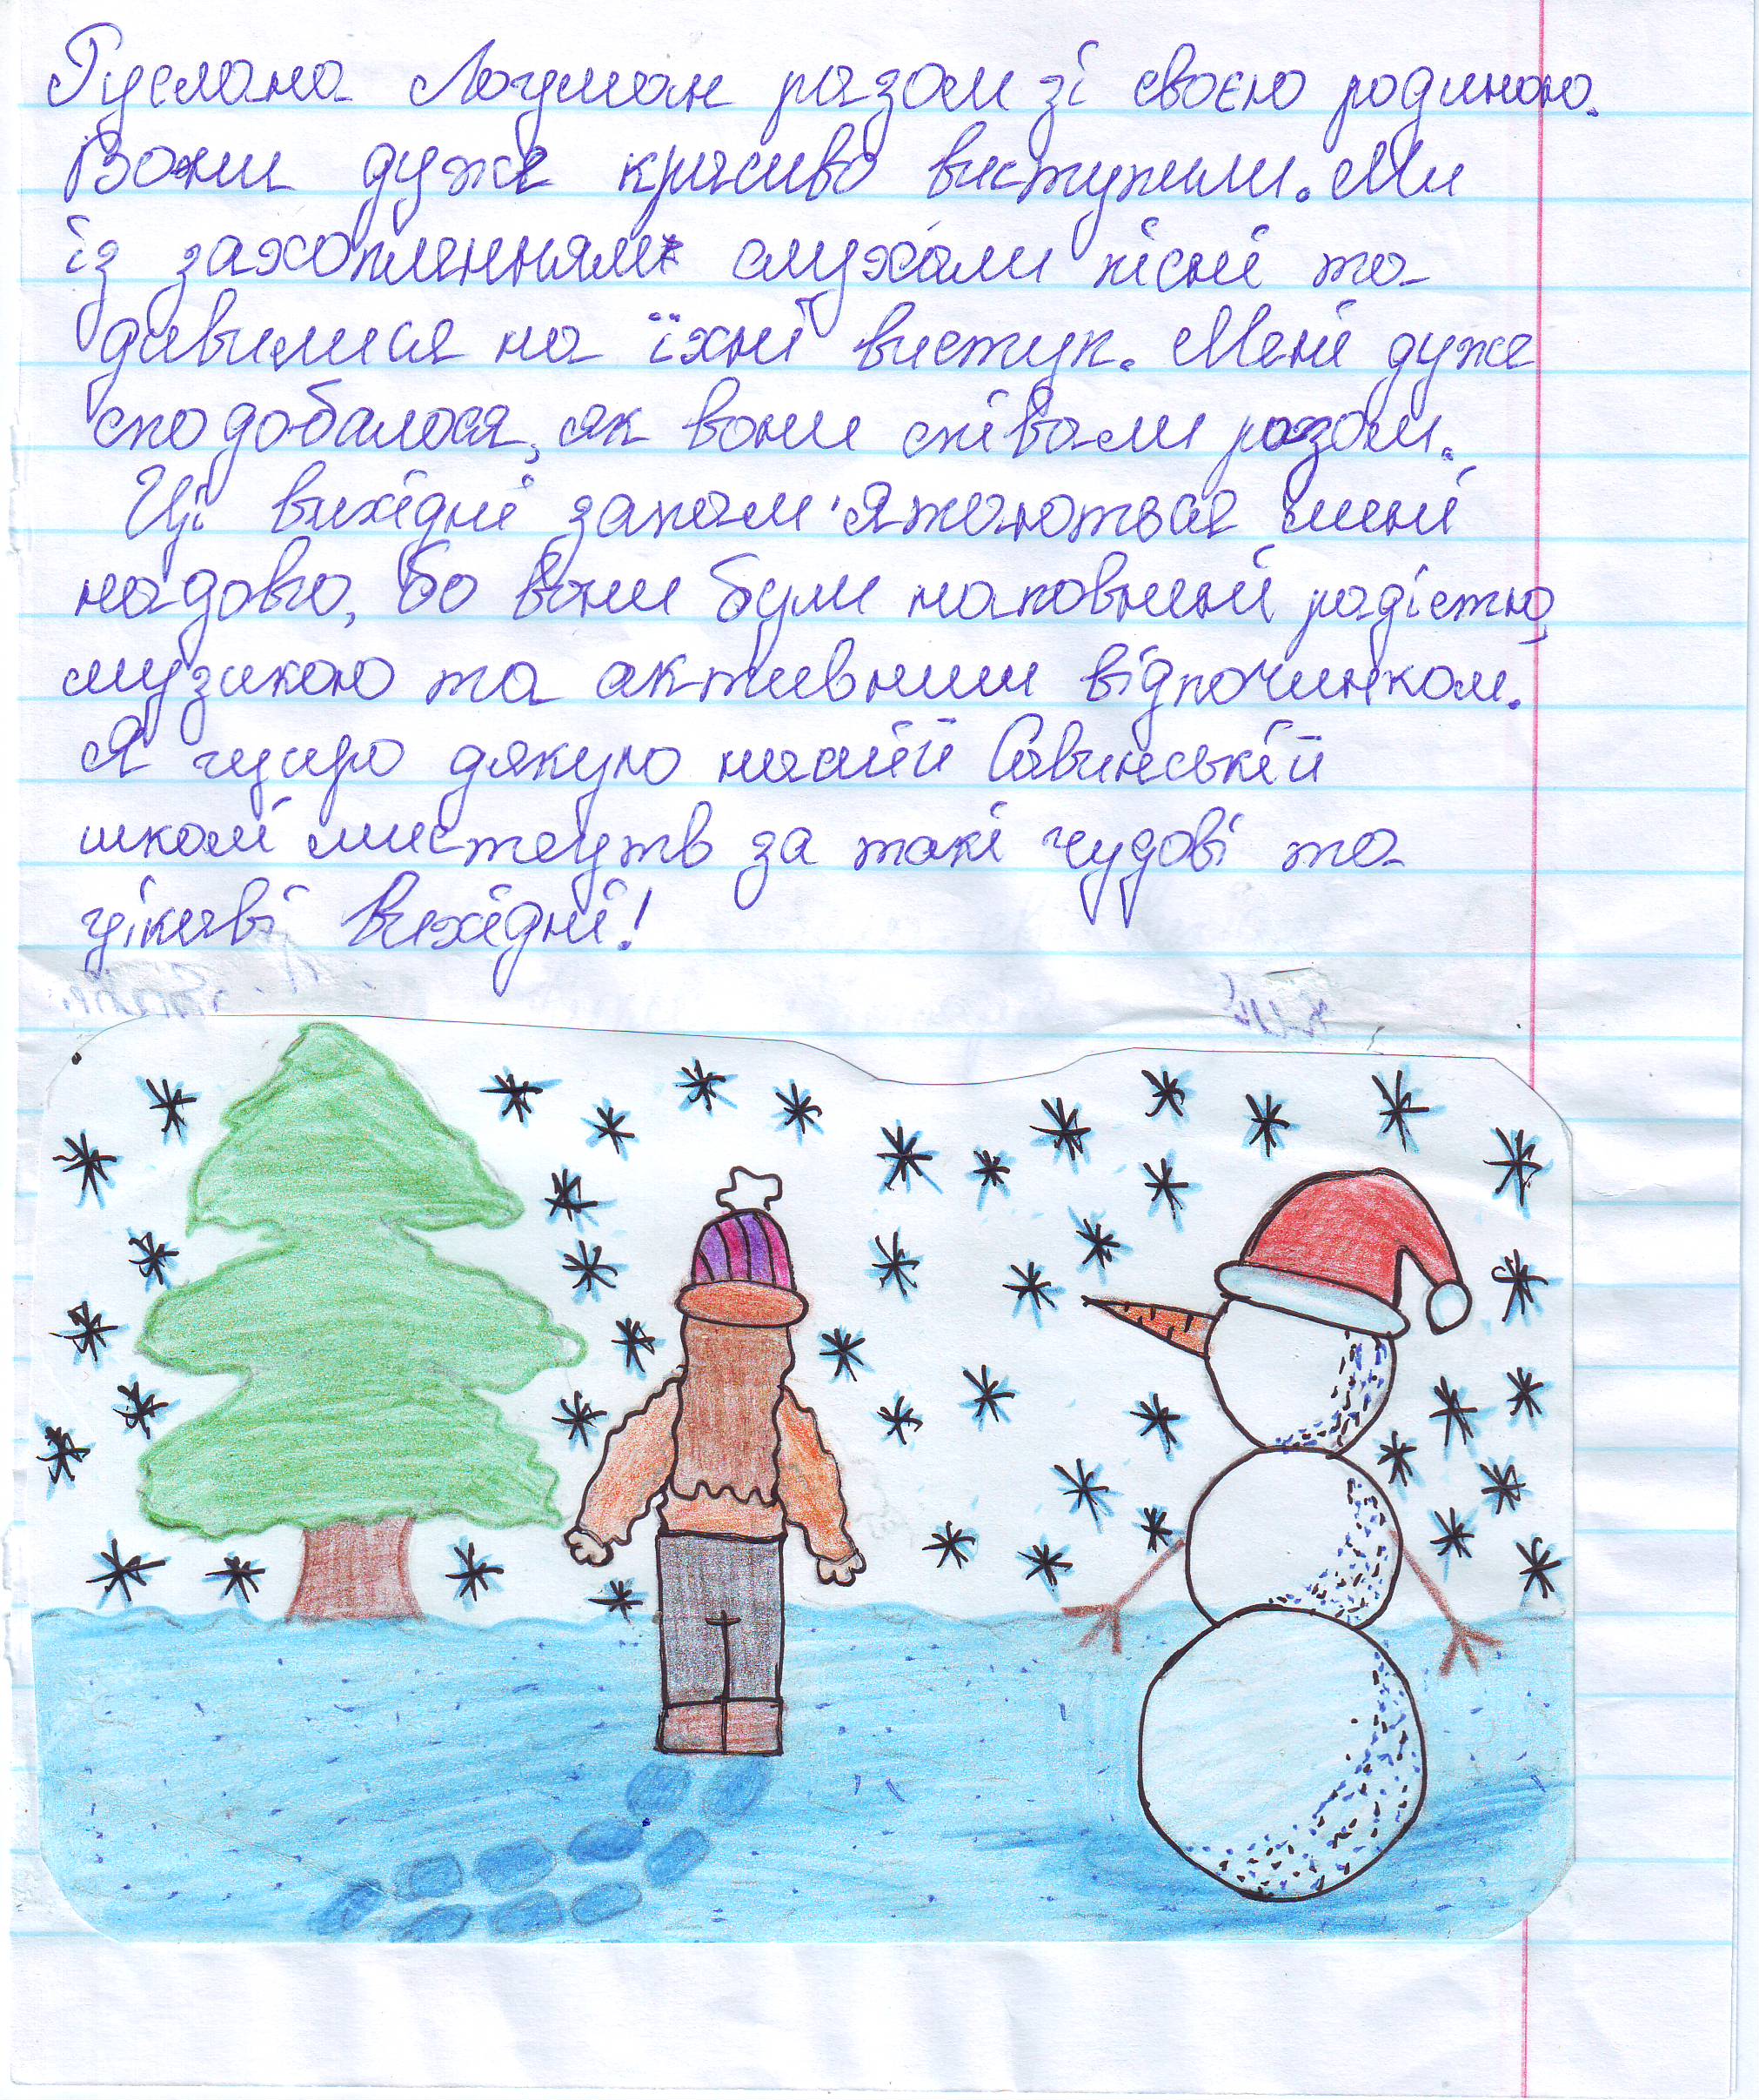 Руслана Логуман разом зі своєю родиною.
Вони дуже красиво виступили. Ми
із захопленням слухали пісні та
дивилися на їхні виступ. Мені дуже
сподобалося, як вони співали разом.
Ці вихідні запам'ятаються мені
надовго, бо вони були наповнені радістю,
музикою та активним відпочинком.
Я щиро дякую нашій Савинській
школі мистецтв за такі чудові та
цікаві вихідні!